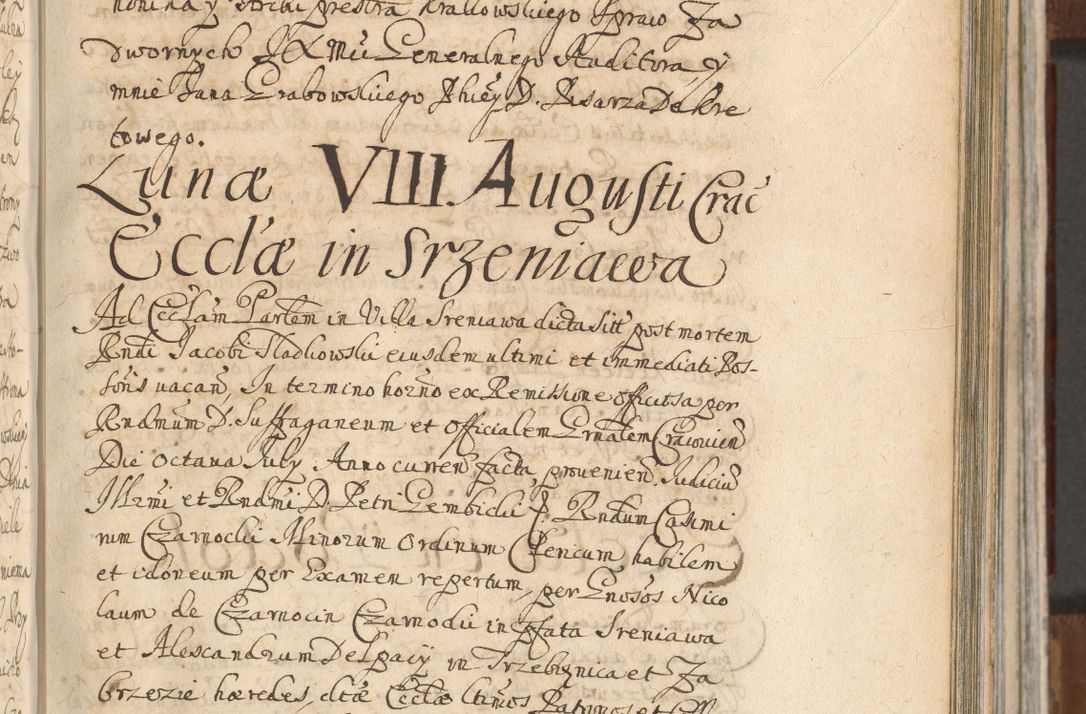 honika y Archi prestra Krakowskiego Spraw Za
dwornych JEXMci Generalnego Auditora, y
mnie Jana Grabowskiego Pbiey D. Pisarza Dekre
towego.
Lunæ VIII Augusti Crac
Eccl'æ in Srzeniawa
Ad Eccl'am Parlem in Villa Sreniawa dicta Sitt post mortem
Rndi Jacobi Sladkowski eiusdem ultimi et immediati Pos-
soris vacan, In termino horno ex Remissione officiosa per
Rndmum D. Suffraganeum et Officialem Grnalem Cracovien
Die octava July Anno curren facta, provenien. Iudiciu
Illrmi et Rndmi D. Petri Gembicki P. Rndum Casimi
rum Czarnocki Minorum Ordinum Clericum, habilem
et idoneum per Examen repertum, per Gnosos Nico
laum de Czarnocin Czarnocki in pfata Sreniawa
et Alexandrum Delpacy in Trzebiznica et Za
brzezie hæredes, dtæ Ecclæ ltimos Patronos et